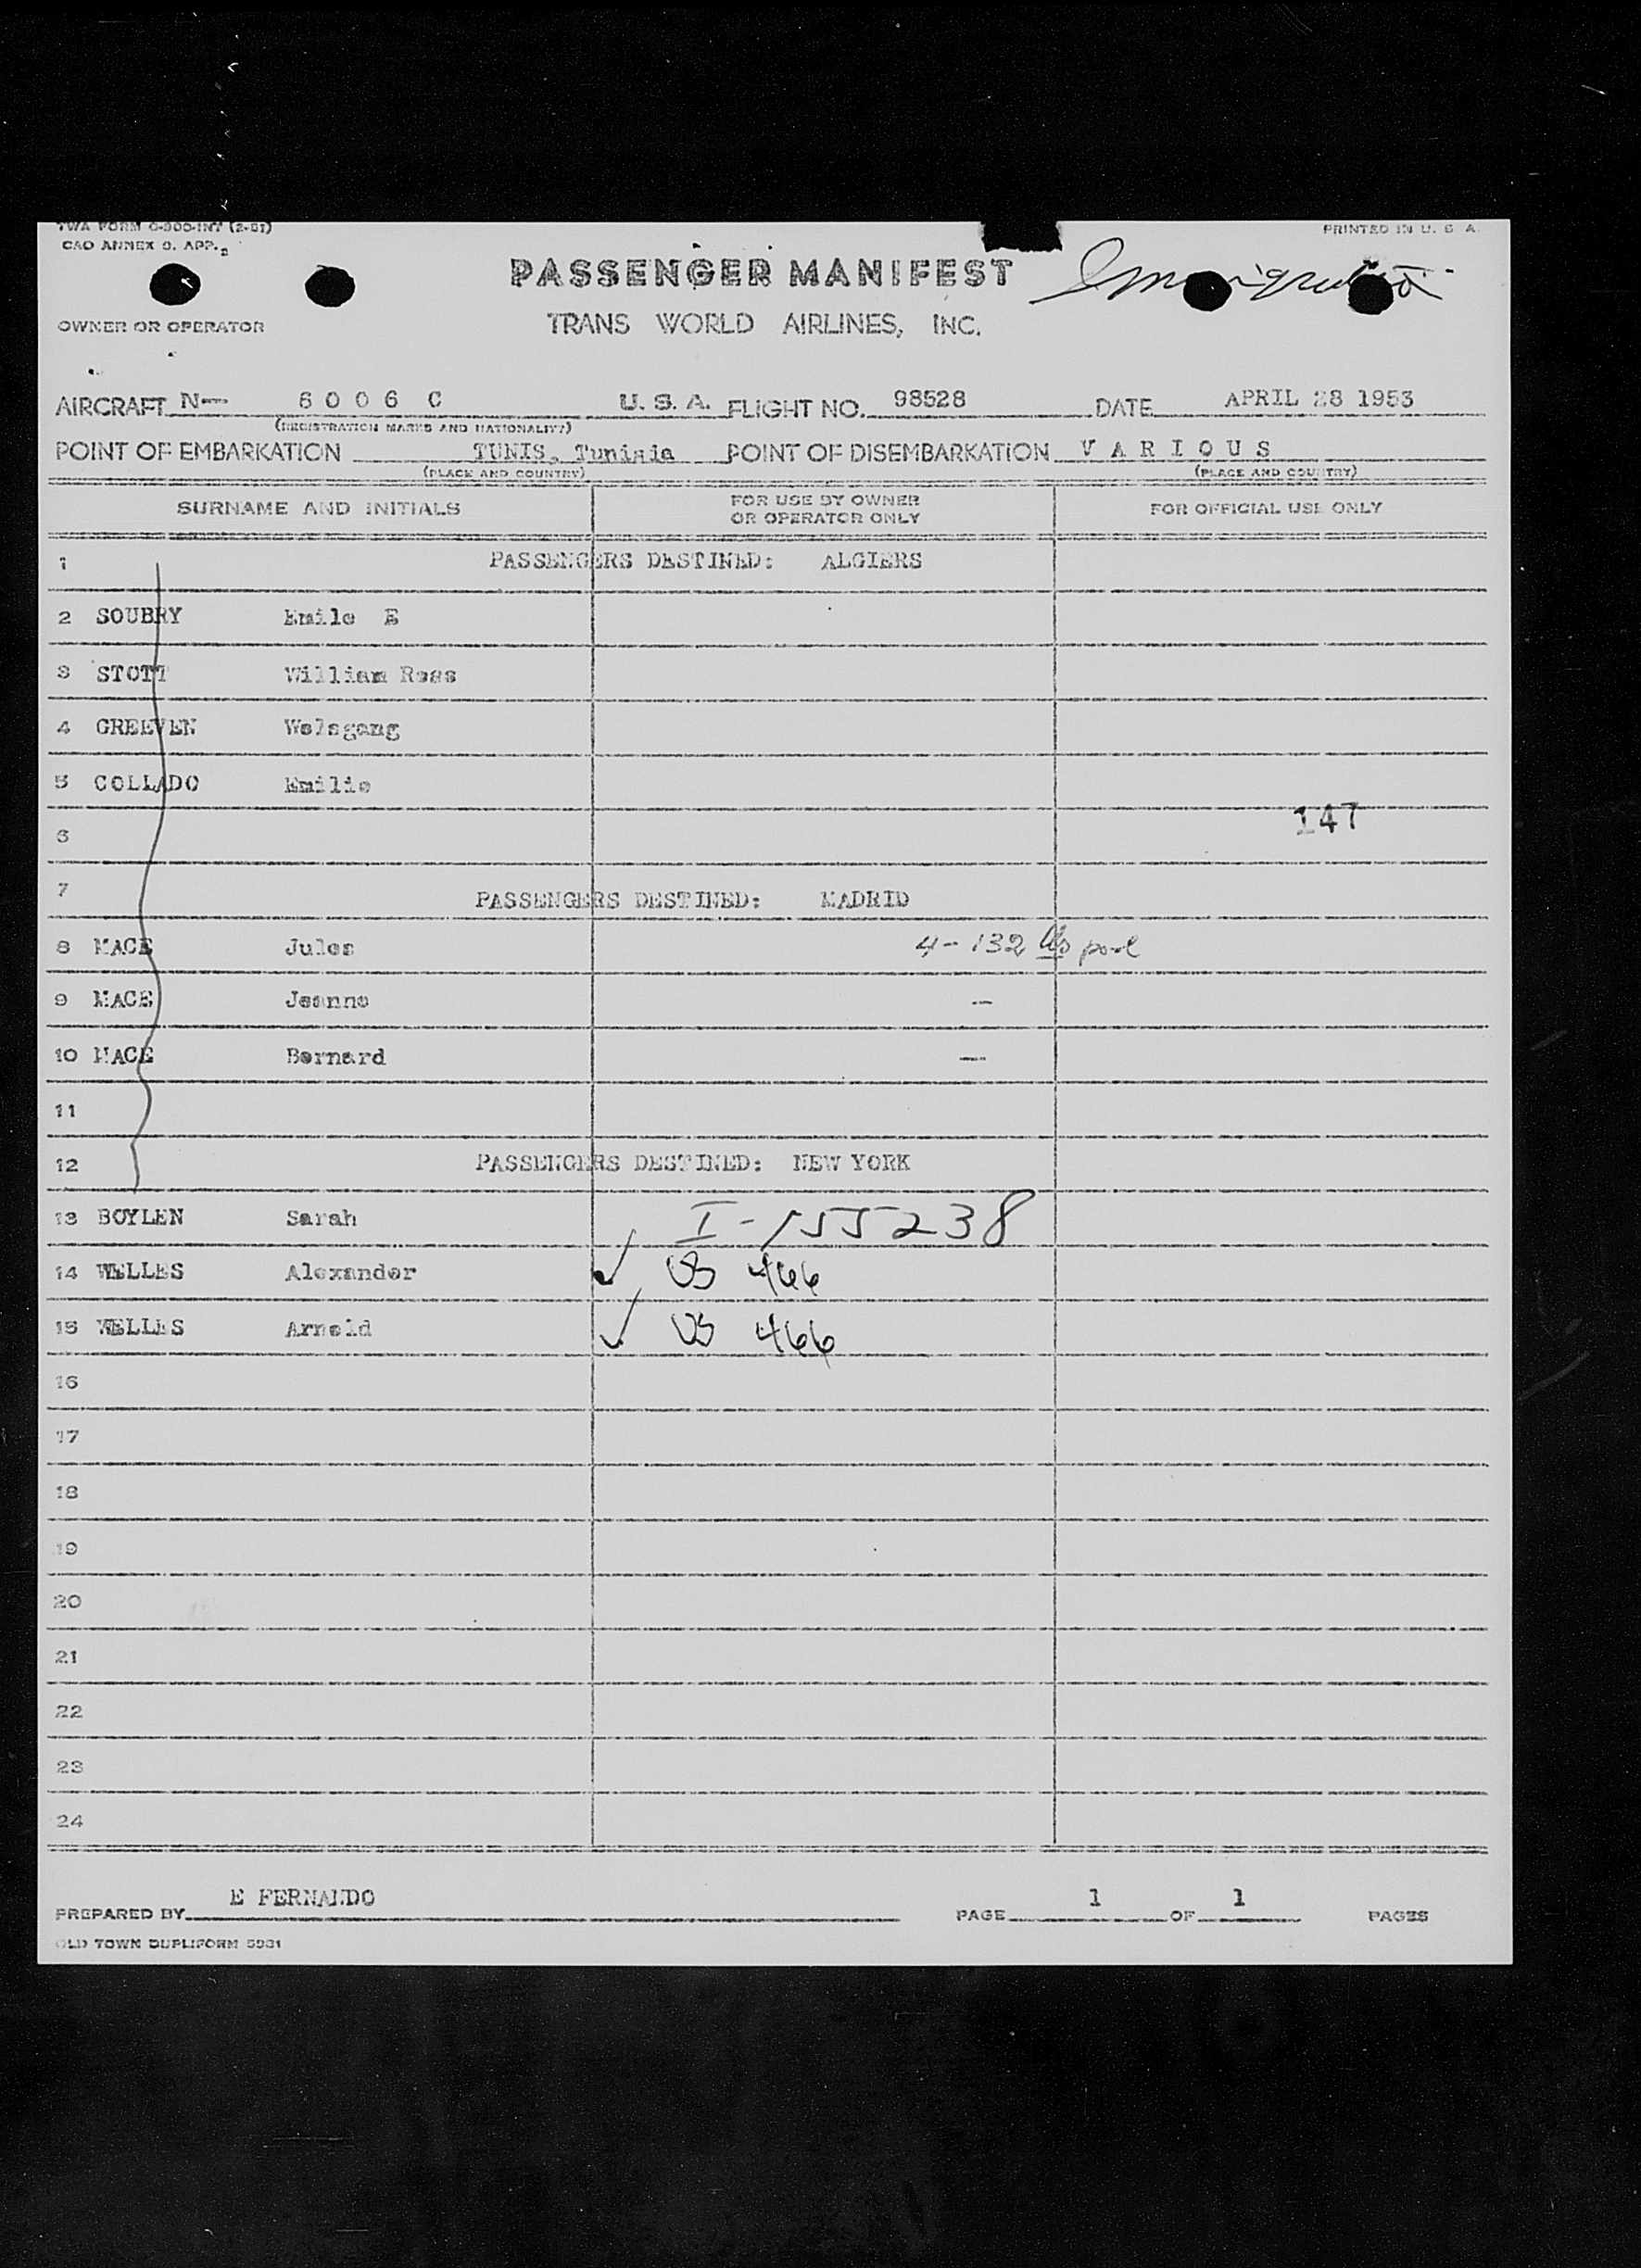 TWA FORM O-300-INT (2-51)
PRINTED IN U. S. A.
CAO ANNEX 9. APP. 2
PASSENGER MANIFEST
OWNER OR OPERATOR
TRANS WORLD AIRLINES, INC.
AIRCRAFT N— 6006 C U.S.A. FLIGHT NO. 98528 DATE APRIL 28 1953
(REGISTRATION MARKS AND NATIONALITY)
POINT OF EMBARKATION TUNIS, Tunisia POINT OF DISEMBARKATION VARIOUS
(PLACE AND COUNTRY) (PLACE AND COUNTRY)
SURNAME AND INITIALS FOR USE BY OWNER OR OPERATOR ONLY FOR OFFICIAL USE ONLY
1 PASSENGERS DESTINED: ALGIERS
2 SOUBRY Emile E
3 STOTT William Ross
4 GREEVEN Wolsgang
5 COLLADO Emilio
147
6
7 PASSENGERS DESTINED: MADRID
8 MACE Jules 4-132 lbs
9 MACE Jeanne —
10 MACE Bernard —
11
12 PASSENGERS DESTINED: NEW YORK
13 BOYLEN Sarah I-155238
14 WELLES Alexander ✓ US 466
15 WELLES Arnold ✓ US 466
16
17
18
19
20
21
22
23
24
PREPARED BY E FERNANDO PAGE 1 OF 1 PAGES
OLD TOWN DUPLIFORM 5931